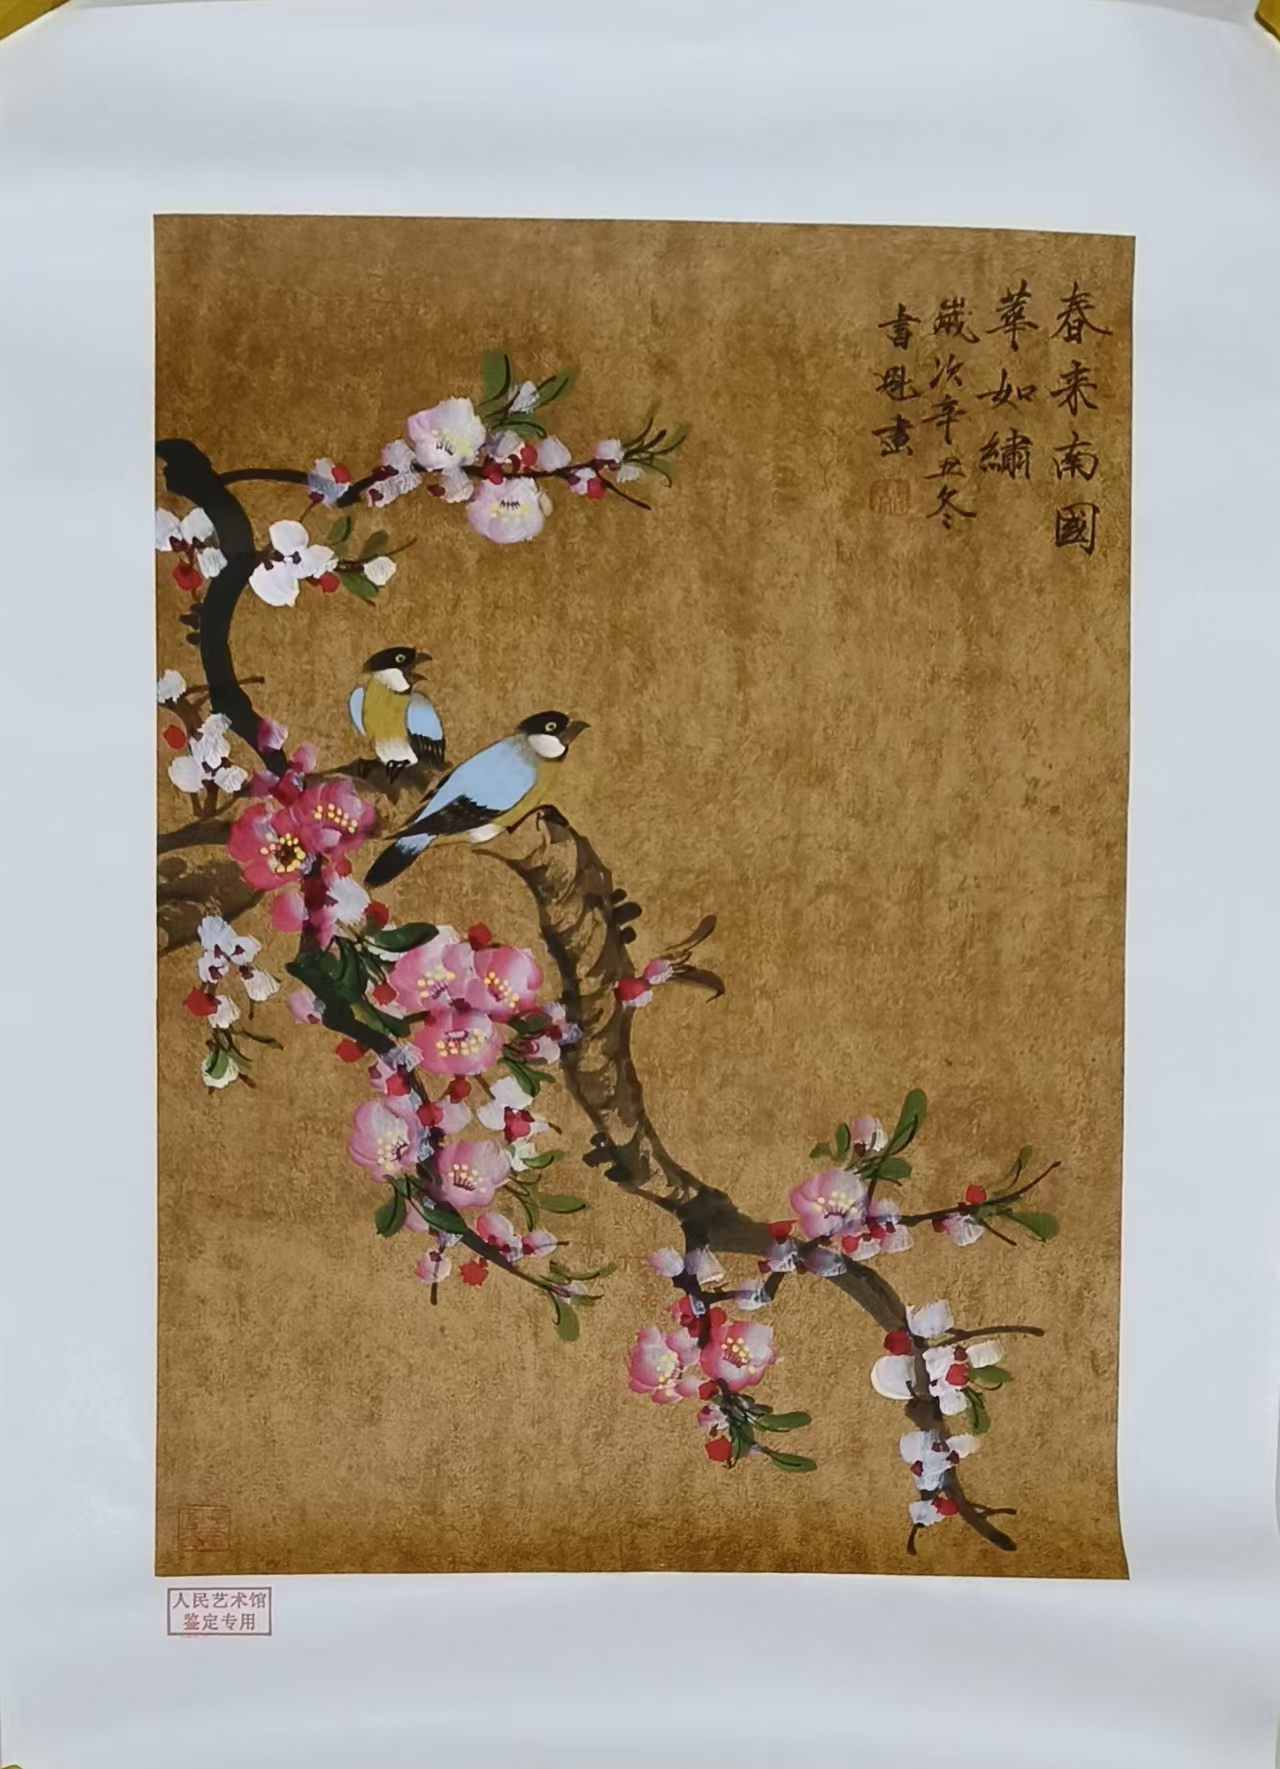 春来南國
華如繡
歲次辛丑冬
書魁畫
人民艺术馆
鉴定专用